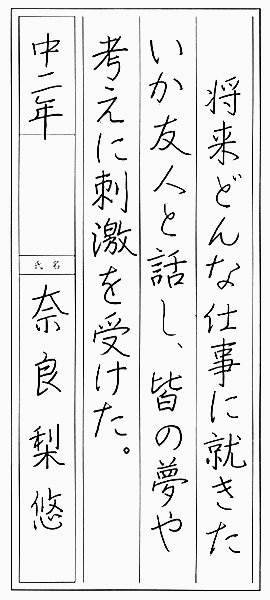 将来どんな仕事に就きた
いか友人と話し、皆の夢や
考えに刺激を受けた。
中二年
氏名
奈良梨悠